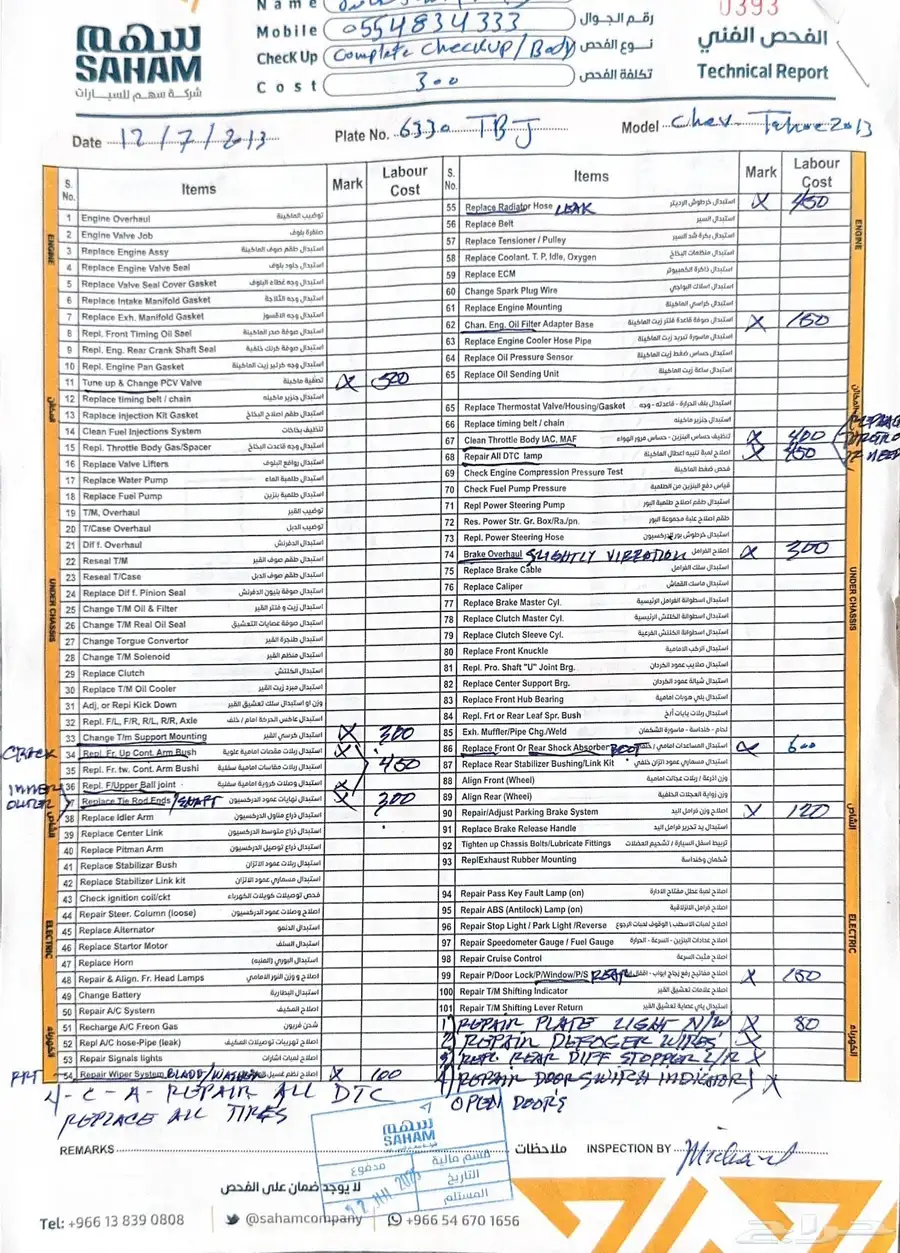 Name
Mobile 0554834333 رقم الجوال
0393
سهم
SAHAM
شركة سهم للسيارات
Check Up Complete Checkup / Body نوع الفحص
Cost 300 تكلفة الفحص
الفحص الفني
Technical Report
Date 12/7/2013 Plate No. 6330 TBJ Model Chev. Tahoe 2013
S. No. Items Mark Labour Cost
ENGINE
1 Engine Overhaul توضيب الماكينة
2 Engine Valve Job صنفرة بلوف
3 Replace Engine Assy استبدال طقم صوف الماكينة
4 Replace Engine Valve Seal استبدال جلود بلوف
5 Replace Valve Seal Cover Gasket استبدال وجه غطاء البلوف
6 Replace Intake Manifold Gasket استبدال وجه الثلاجة
7 Replace Exh. Manifold Gasket استبدال وجه الاقسوز
8 Repl. Front Timing Oil Sael استبدال صوفة صدر الماكينة
9 Repl. Eng. Rear Crank Shaft Seal استبدال صوفة كرنك خلفية
10 Repl. Engine Pan Gasket استبدال وجه كرتير زيت الماكينة
11 Tune up & Change PCV Valve تصفية ماكينة X 500
12 Replace timing belt / chain استبدال جنزير ماكينه
13 Raplace Injection Kit Gasket استبدال طقم اصلاح البخاخ
14 Clean Fuel Injections System تنظيف بخاخات
15 Repl. Throttle Body Gas/Spacer استبدال وجه قاعدت البخاخ
16 Replace Valve Lifters استبدال روافع البلوف
17 Replace Water Pump استبدال طلمبة الماء
18 Replace Fuel Pump استبدال طلمبة بنزين
19 T/M, Overhaul توضيب القير
20 T/Case Overhaul توضيب الدبل
21 Dif f. Overhaul استبدال الدفرنش
UNDER CHASSIS
22 Reseal T/M استبدال طقم صوف القير
23 Reseal T/Case استبدال طقم صوف الدبل
24 Replace Dif f. Pinion Seal استبدال صوفة بنيون الدفرنش
25 Change T/M Oil & Filter استبدال زيت و فلتر القير
26 Change T/M Real Oil Seal استبدال صوفة عصايات التعشيق
27 Change Torgue Convertor استبدال طلجرة القير
28 Change T/M Solenoid استبدال منظم القير
29 Replace Clutch استبدال الكلتش
30 Replace T/M Oil Cooler استبدال مبرد زيت القير
31 Adj. or Repl Kick Down وزن او استبدال سلك تعشيق القير
32 Repl. F/L, F/R, R/L, R/R, Axle استبدال عاكس الحركة امام / خلف
33 Change T/m Support Mounting استبدال كرسي القير X 300
CRACK 34 Repl. Fr. Up Cont. Arm Bush استبدال ربلات مقصات امامية علوية X
35 Repl. Fr. tw. Cont. Arm Bushi استبدال ربلات مقاسات امامية سفلية 450
INNER 36 Repl. F/Upper Ball joint استبدال وصلات كروية امامية سفلية X
OUTER 37 Replace Tie Rod Ends / SHAFT استبدال نهايات عمود الدركسيون X 300
38 Replace Idler Arm استبدال ذراع مناول الدركسيون
39 Replace Center Link استبدال ذراع متوسط الدركسيون
40 Replace Pitman Arm استبدال ذراع توصيل الدركسيون
41 Replace Stabilizar Bush استبدال ربلات عمود الاتزان
42 Replace Stabilizer Link kit استبدال مسماري عمود الاتزان
43 Check ignition coil/ckt فحص توصيلات كويلات الكهرباء
44 Repair Steer. Column (loose) اصلاح وصلات عمود الدركسيون
ELECTRIC
45 Replace Alternator استبدال الدنمو
46 Replace Startor Motor استبدال السلف
47 Replace Horn استبدال البوري (المنبه)
48 Repair & Align. Fr. Head Lamps اصلاح و وزن النور الامامي
49 Change Battery استبدال البطارية
50 Repair A/C Systern اصلاح المكيف
51 Recharge A/C Freon Gas شحن فريون
52 Repl A/C hose-Pipe (leak) استبدال لهريبات توصيلات المكيف
53 Repair Signals lights اصلاح لمبات اشارات
54 Repair Wiper System BLADE/WASHER X 100
S. No. Items Mark Labour Cost
ENGINE
55 Replace Radiator Hose LEAK استبدال خرطوش الرديتر X 450
56 Replace Belt استبدال السير
57 Replace Tensioner / Pulley استبدال بكرة شد السير
58 Replace Coolant. T. P, Idle, Oxygen استبدال منظمات البخاخ
59 Replace ECM استبدال ذاكرة الكمبيوتر
60 Change Spark Plug Wire استبدال اسلاك البواجي
61 Replace Engine Mounting استبدال كراسي الماكينة
62 Chan. Eng. Oil Filter Adapter Base استبدال صوفة قاعدة فلتر زيت الماكينة X 150
63 Replace Engine Cooler Hose Pipe استبدال ماسورة تبريد زيت الماكينة
64 Replace Oil Pressure Sensor استبدال حساس ضغط زيت الماكينة
65 Replace Oil Sending Unit استبدال ساعة زيت الماكينة
65 Replace Thermostat Valve/Housing/Gasket استبدال بلف الحرارة - قاعدته - وجه
66 Replace timing belt / chain استبدال جنزير ماكينه
67 Clean Throttle Body IAC, MAF تنظيف حساس البنزين - حساس مرور الهواء X 400
68 Repair All DTC lamp اصلاح لمبة تنبيه اعطال الماكينة X 450
69 Check Engine Compression Pressure Test فحص ضغط الماكينة
70 Check Fuel Pump Pressure قياس دفع البنزين من الطلمبة
71 Repl Power Steering Pump استبدال طقم اصلاح طلمبة البور
72 Res. Power Str. Gr. Box/Ra./pn. طقم اصلاح علبة مجموعة البور
73 Repl. Power Steering Hose استبدال خرطوش بور الدركسيون
UNDER CHASSIS
74 Brake Overhaul SLIGHTLY VIBRATION اصلاح الفرامل X 300
75 Replace Brake Cable استبدال سلك الفرامل
76 Replace Caliper استبدال ماسك القماش
77 Replace Brake Master Cyl. استبدال اسطوانة الفرامل الرئيسية
78 Replace Clutch Master Cyl. استبدال اسطوانة الكلتش الرئيسية
79 Replace Clutch Sleeve Cyl. استبدال اسطوانة الكلتش الفرعية
80 Replace Front Knuckle استبدال الركب الامامية
81 Repl. Pro. Shaft "U" Joint Brg. استبدال صلايب عمود الكردان
82 Replace Center Support Brg. استبدال شيالة عمود الكردان
83 Replace Front Hub Bearing استبدال بلي هوبات امامية
84 Repl. Frt or Rear Leaf Spr. Bush استبدال ربلات يايات
85 Exh. Muffler/Pipe Chg./Weld لحام - خداسة - ماسورة الشكمان
86 Replace Front Or Rear Shock Absorber BOOT استبدال المساعدات امامي / خلفي X 600
87 Replace Rear Stabilizer Bushing/Link Kit استبدال مسماري عمود اتزان خلفي
88 Align Front (Wheel) وزن اذرعة / ربلات عجلات امامية
89 Align Rear (Wheel) وزن زواية العجلات الخلفية
90 Repair/Adjust Parking Brake System اصلاح وزن فرامل اليد X 120
91 Replace Brake Release Handle استبدال يد تحرير فرامل اليد
92 Tighten up Chassis Bolts/Lubricate Fittings تربيط اسفل السيارة / تشحيم العضلات
93 ReplExhaust Rubber Mounting شكمان وكنداسة
ELECTRIC
94 Repair Pass Key Fault Lamp (on) اصلاح لمبة عطل مفتاح الادارة
95 Repair ABS (Antilock) Lamp (on) اصلاح فرامل الانزلاقية
96 Repair Stop Light / Park Light /Reverse اصلاح لمبات الاسطب / الوقوف لمبات الرجوع
97 Repair Speedometer Gauge / Fuel Gauge اصلاح عدادات البنزين - السرعة - الحرارة
98 Repair Cruise Control اصلاح مثبت السرعة
99 Repair P/Door Lock/P/Window/P/S REAR X 150
100 Repair T/M Shifting Indicator اصلاح علامات تعشيق القير
101 Repair T/M Shifting Lever Return استبدال ياي عصاية تعشيق القير
1) REPAIR PLATE LIGHT N/W X 80
2) REPAIR DEFOGER WIRES X
3) REPL. REAR DIFF STOPPER L/R X
4) REPAIR DOOR SWITCH INDICATOR X
OPEN DOORS
4-C-A-REPAIR ALL DTC
REPLACE ALL TIRES
REMARKS ملاحظات INSPECTION BY Michael
سهم
SAHAM
مدفوع
قسم مالية
التاريخ
المستلم
لا يوجد ضمان على الفحص
Tel: +966 13 839 0808 @sahamcompany +966 54 670 1656
حراج